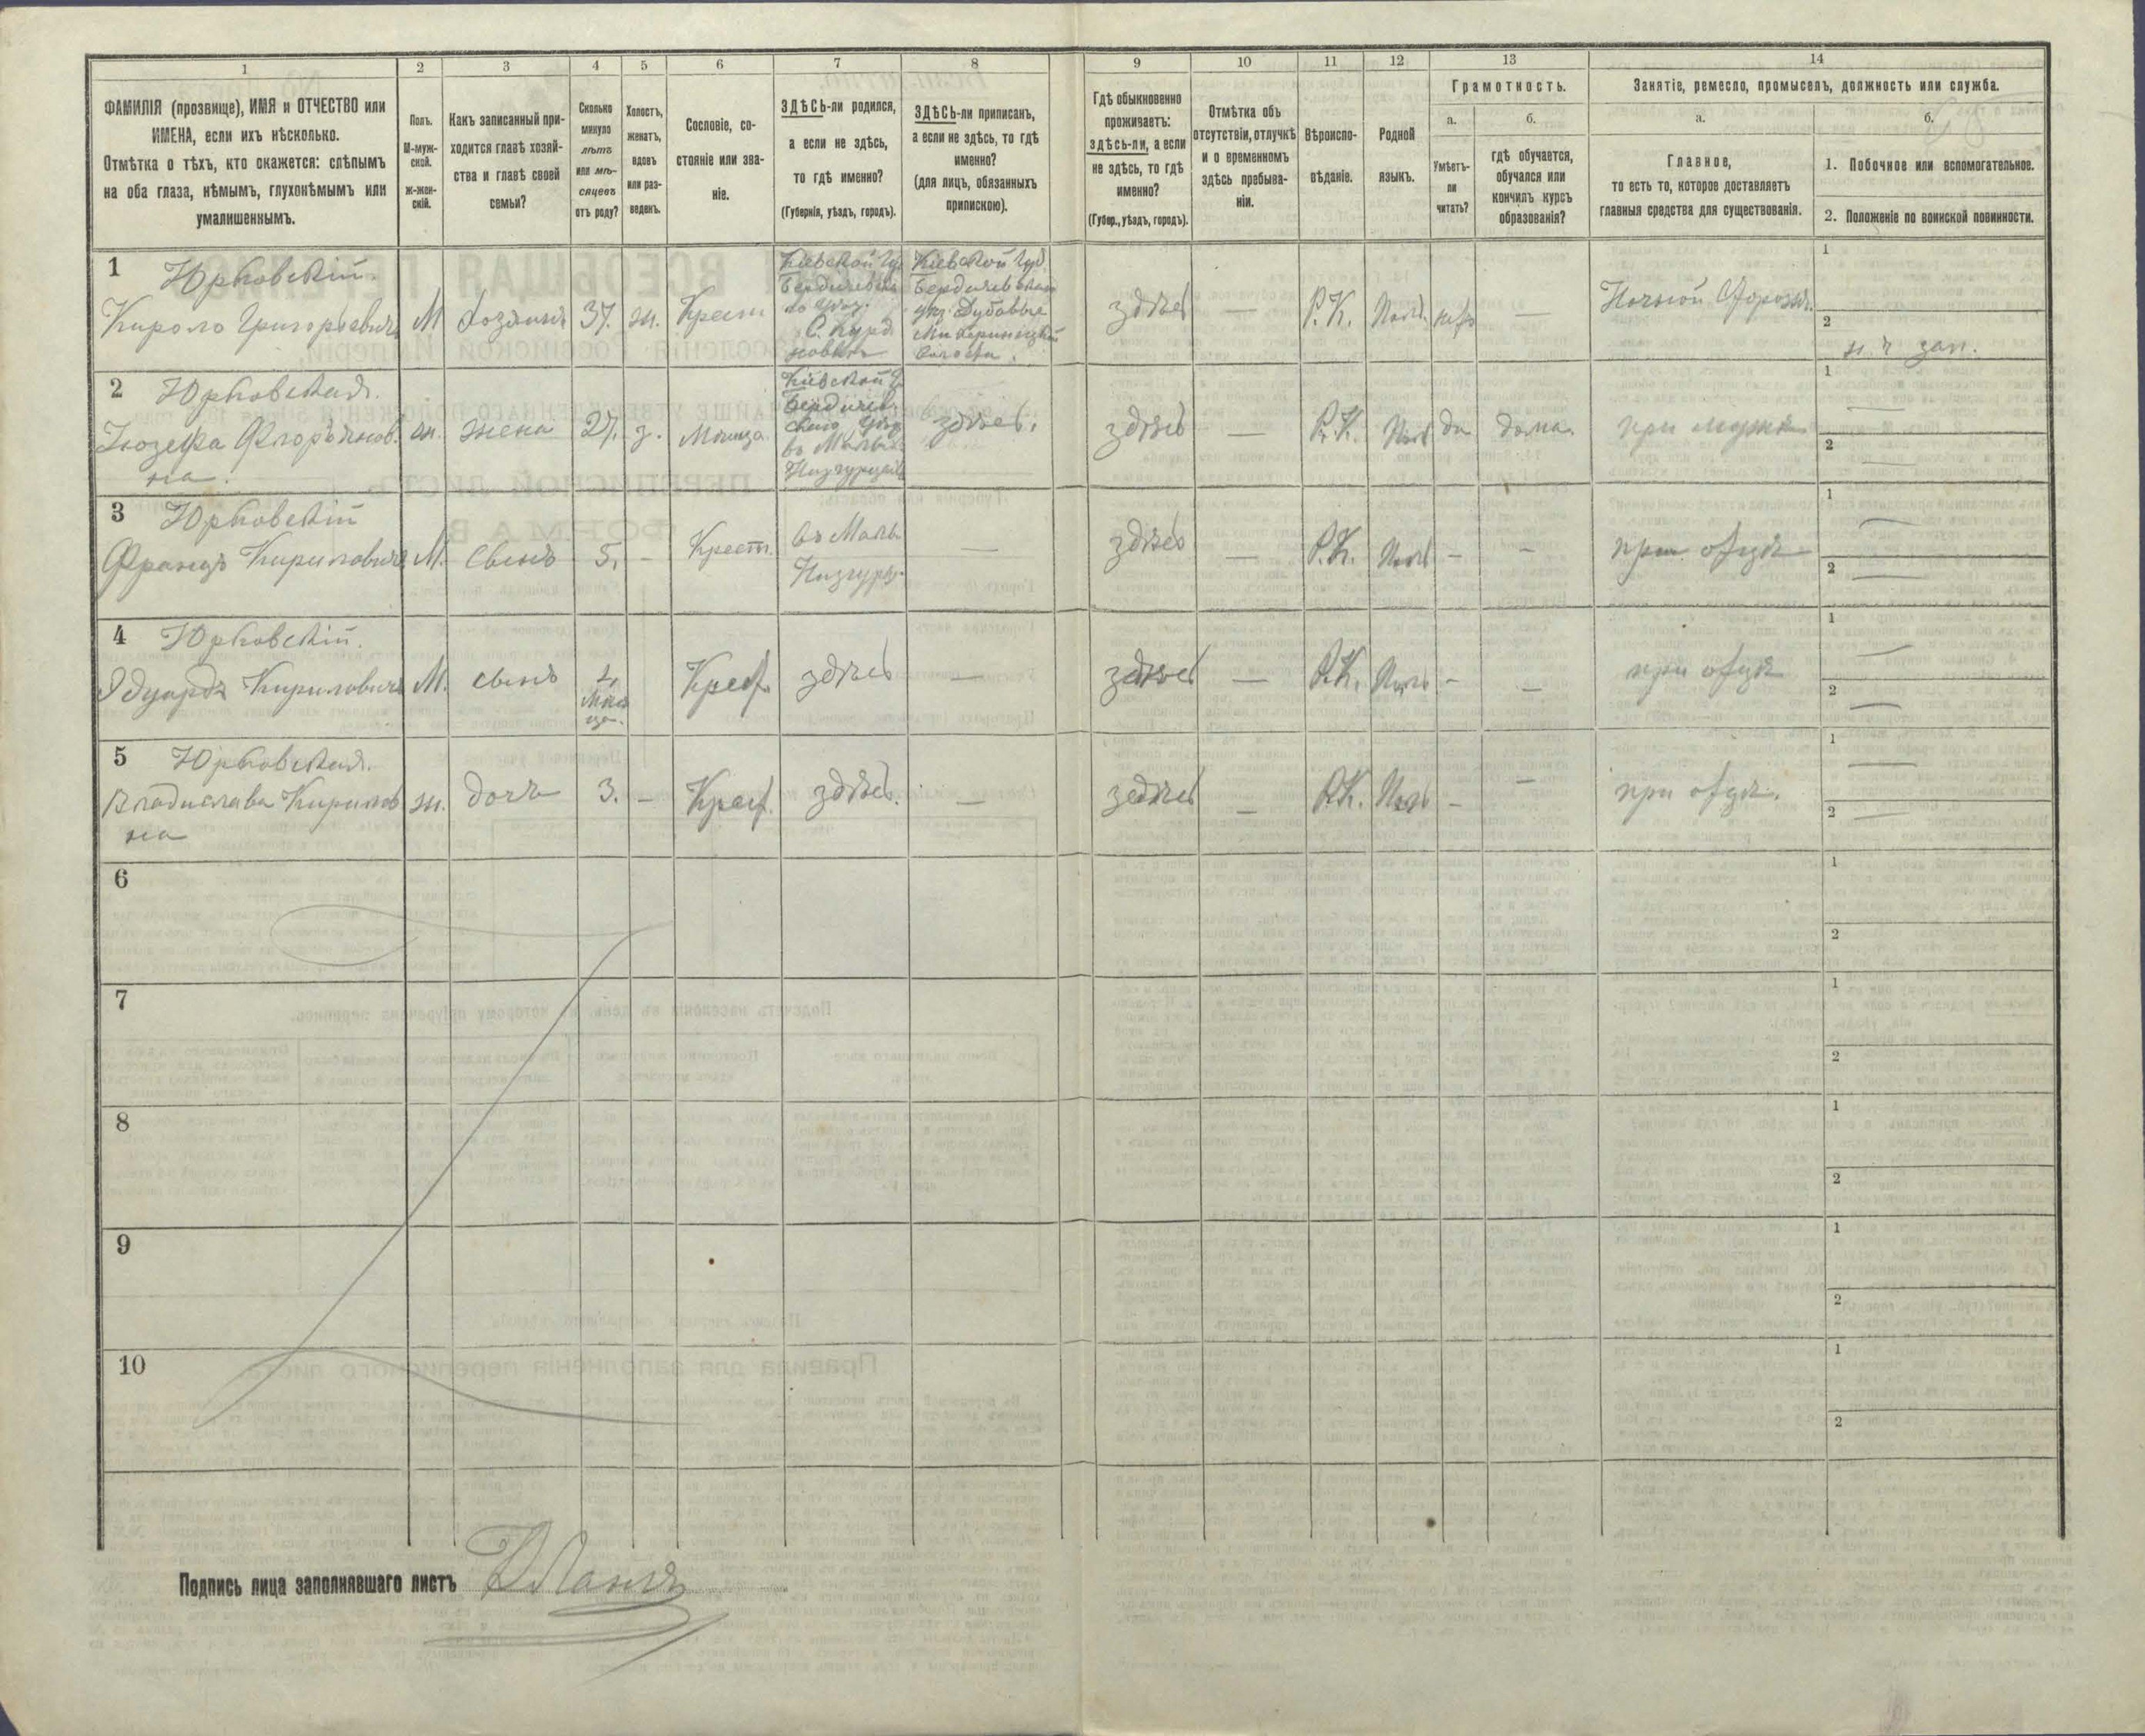 1
2
3
4
5
6
7
8
9
10
11
12
13
14
ФАМИЛІЯ (прозвище), ИМЯ и ОТЧЕСТВО или
ИМЕНА, если ихъ нѣсколько.
Отмѣтка о тѣхъ, кто окажется: слѣпымъ
на оба глаза, нѣмымъ, глухонѣмымъ или
умалишеннымъ.
Полъ.
М-муж-
ской.
ж-жен-
скій.
Какъ записанный при-
ходится главѣ хозяй-
ства и главѣ своей
семьи?
Сколько
минуло
лѣтъ
или мѣ-
сяцевъ
отъ роду?
Холостъ,
женатъ,
вдовъ
или раз-
веденъ.
Сословіе, со-
стояніе или зва-
ніе.
ЗДѢСЬ-ли родился,
а если не здѣсь,
то гдѣ именно?
(Губернія, уѣздъ, городъ).
ЗДѢСЬ-ли приписанъ,
а если не здѣсь, то гдѣ
именно?
(для лицъ, обязанныхъ
припискою).
Гдѣ обыкновенно
проживаетъ:
здѣсь-ли, а если
не здѣсь, то гдѣ
именно?
(Губер., уѣздъ, городъ).
Отмѣтка объ
отсутствіи, отлучкѣ
и о временномъ
здѣсь пребыва-
ніи.
Вѣроиспо-
вѣданіе.
Родной
языкъ.
Грамотность.
а.
Умѣетъ-
ли
читать?
б.
гдѣ обучается,
обучался или
кончилъ курсъ
образованія?
Занятіе, ремесло, промыселъ, должность или служба.
а.
Главное,
то есть то, которое доставляетъ
главныя средства для существованія.
б.
1. Побочное или вспомогательное.
2. Положеніе по воинской повинности.
1 Юрковскій.
Кироло Григорьевичъ М хозяинъ 37. ж. Крест
Кіевской Губ
Бердичевска
го уѣзд.
Кіевской Губ.
Бердичевскаго
уѣз.
здѣсь — Р.К. — Ночной Сторожъ.
1
2
2 Юрковская.
Юзефа Флорьянов
на. жн. жена 27. з.
Кіевской Г
Бердичев
скаго уѣзд
здѣсь.
здѣсь — Р.К. да дома. при мужѣ
1
2
3 Юрковскій
Францъ Кириловичъ М. сынъ 5. - Крест. въ Мал. — здѣсь — Р.К. - - при отцѣ
1
2
4 Юрковскій.
Эдуардъ Кириловичъ М. сынъ
Крест. здѣсь — здѣсь — Р.К. - — при отцѣ
1
2
5 Юрковская.
Владислава Кирилов
на жн. дочь 3. - Крест. здѣсь. — здѣсь — Р.К. - - при отцѣ.
1
2
6
1
2
7
1
2
8
1
2
9
1
2
10
1
2
Подпись лица заполнявшаго листъ